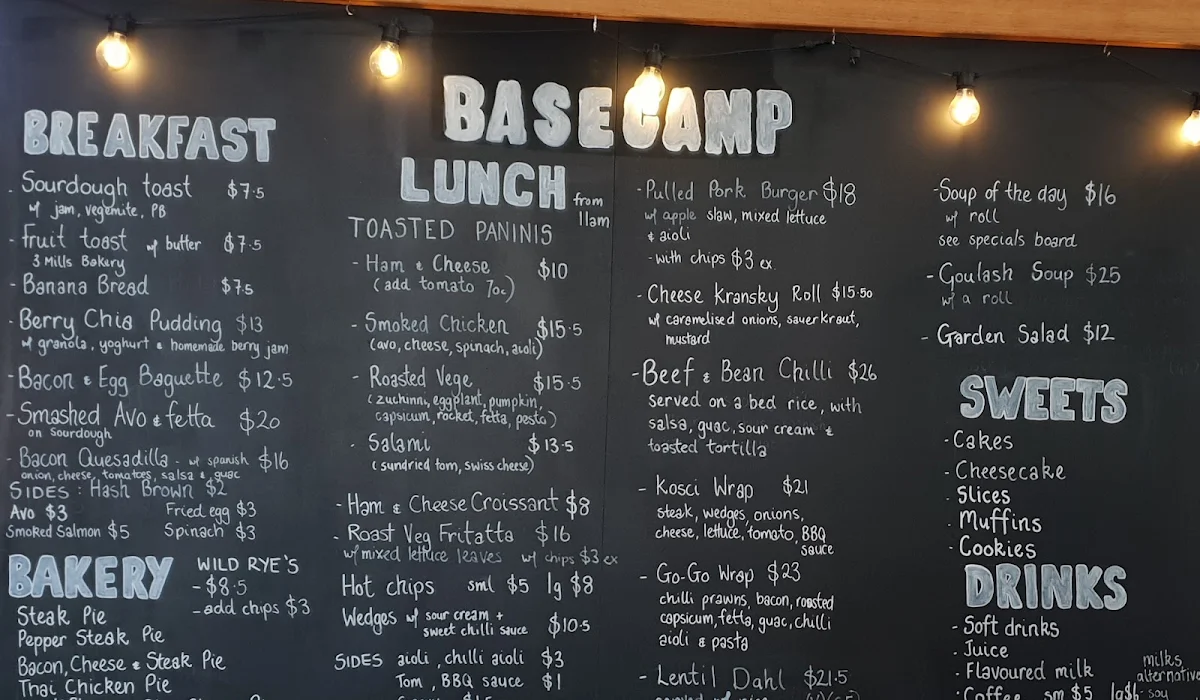 BASECAMP
BREAKFAST
- Sourdough toast $7.5
w/ jam, vegemite, PB
- Fruit toast w/ butter $7.5
3 Mills Bakery
- Banana Bread $7.5
- Berry Chia Pudding $13
w/ granola, yoghurt & homemade berry jam
- Bacon & Egg Baguette $12.5
- Smashed Avo & fetta $20
on Sourdough
- Bacon Quesadilla - w/ spanish $16
onion, cheese, tomatoes, salsa & guac
SIDES: Hash Brown $2
Avo $3 Fried egg $3
Smoked Salmon $5 Spinach $3
BAKERY
WILD RYE'S
- $8.5
- add chips $3
Steak Pie
Pepper Steak Pie
Bacon, Cheese & Steak Pie
Thai Chicken Pie
LUNCH from 11am
TOASTED PANINIS
- Ham & Cheese $10
(add tomato 70c)
- Smoked Chicken $15.5
(avo, cheese, spinach, aioli)
- Roasted Vege $15.5
(zuchinni, eggplant, pumpkin,
capsicum, rocket, fetta, pesto)
- Salami $13.5
(sundried tom, swiss cheese)
- Ham & Cheese Croissant $8
- Roast Veg Fritatta $16
w/ mixed lettuce leaves w/ chips $3 ex
Hot chips sml $5 lg $8
Wedges w/ sour cream +
sweet chilli sauce $10.5
SIDES aioli, chilli aioli $3
Tom, BBQ sauce $1
- Pulled Pork Burger $18
w/ apple slaw, mixed lettuce
& aioli
- with chips $3 ex.
- Cheese Kransky Roll $15.50
w/ caramelised onions, sauerkraut,
mustard
- Beef & Bean Chilli $26
served on a bed rice, with
salsa, guac, sour cream &
toasted tortilla
- Kosci Wrap $21
steak, wedges, onions,
cheese, lettuce, tomato, BBQ
sauce
- Go-Go Wrap $23
chilli prawns, bacon, roasted
capsicum, fetta, guac, chilli
aioli & pasta
- Lentil Dahl $21.5
- Soup of the day $16
w/ roll
see specials board
- Goulash Soup $25
w/ a roll
- Garden Salad $12
SWEETS
- Cakes
- Cheesecake
- Slices
- Muffins
- Cookies
DRINKS
- Soft drinks
- Juice
- Flavoured milk
- Coffee sm $5
milks
soy